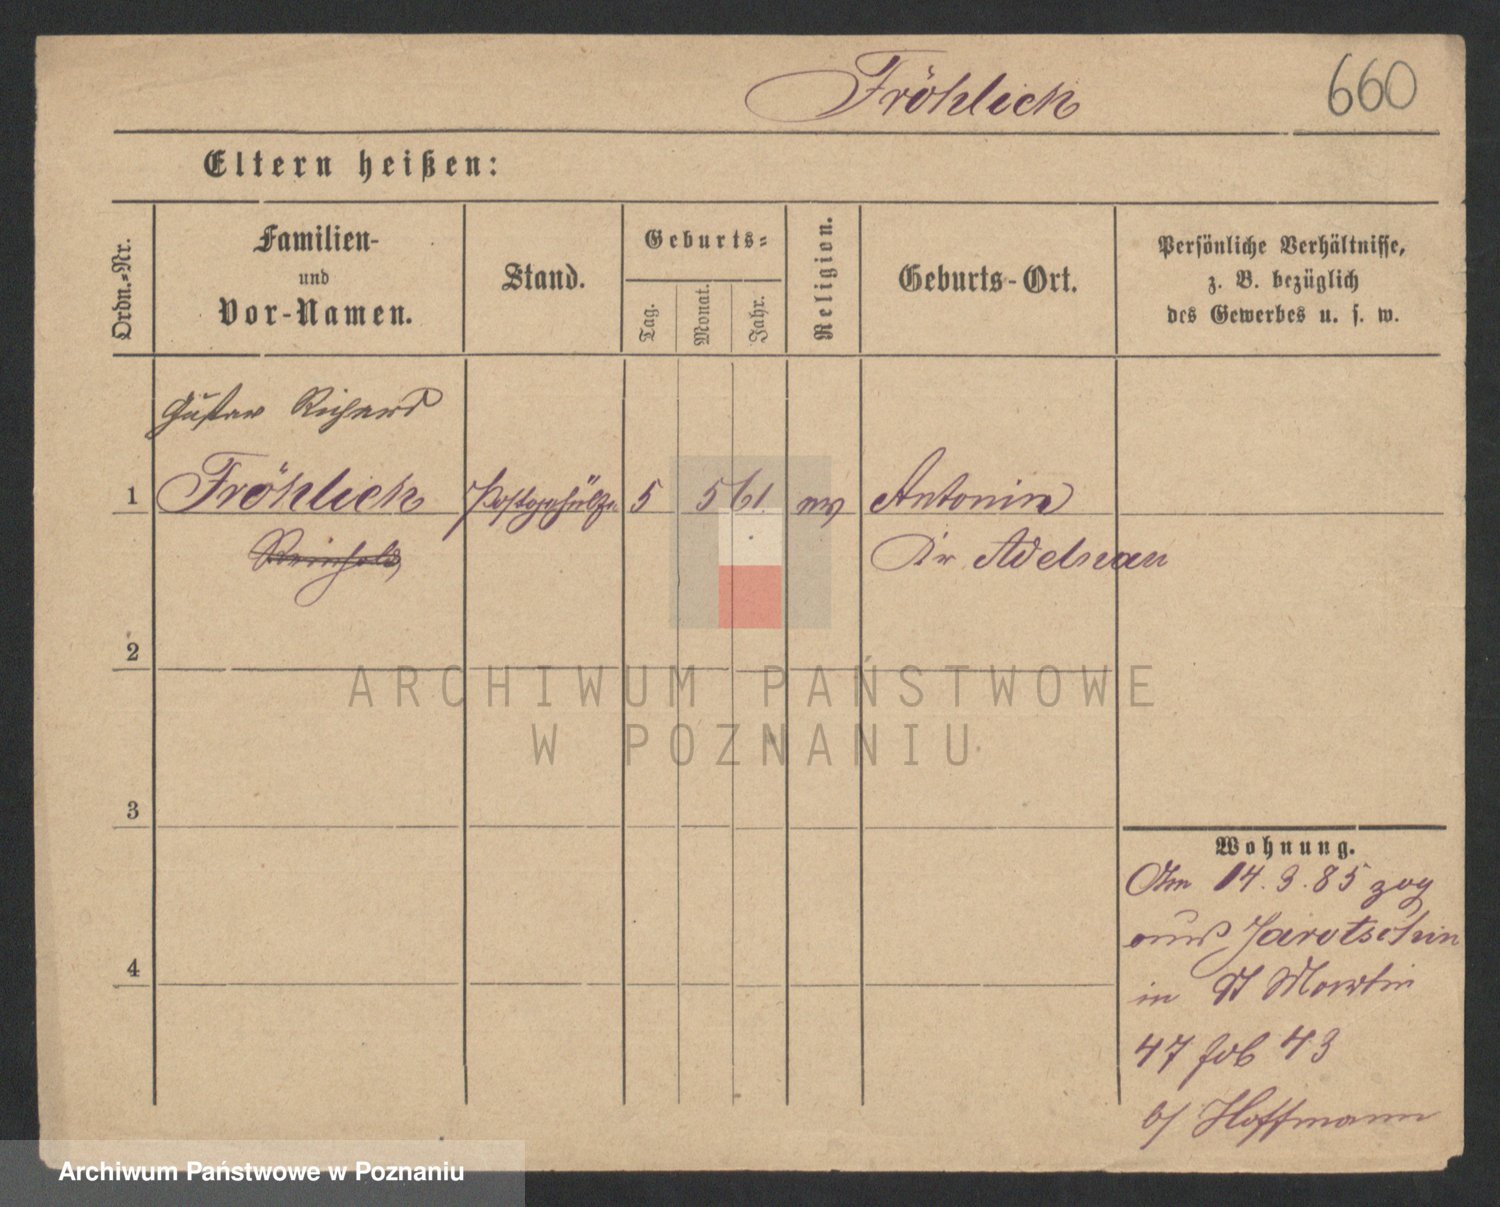 Fröhlich
660
Eltern heißen:
Ordn.-Nr.
Familien-
und
Vor-Namen.
Stand.
Geburts-
Tag.
Monat.
Jahr.
Religion.
Geburts-Ort.
Persönliche Verhältnisse,
z. B. bezüglich
des Gewerbes u. s. w.
Gustav Richard
1 Fröhlich Postgehülfe 5 5 61. ev Antonin
Reinhold
Kr Adelnau
2
ARCHIWUM PAŃSTWOWE
W POZNANIU
3
4
Wohnung.
Am 14.3.85 zog
aus Jarotschin
in St Martin
47 Job 43
b/ Hoffmann
Archiwum Państwowe w Poznaniu